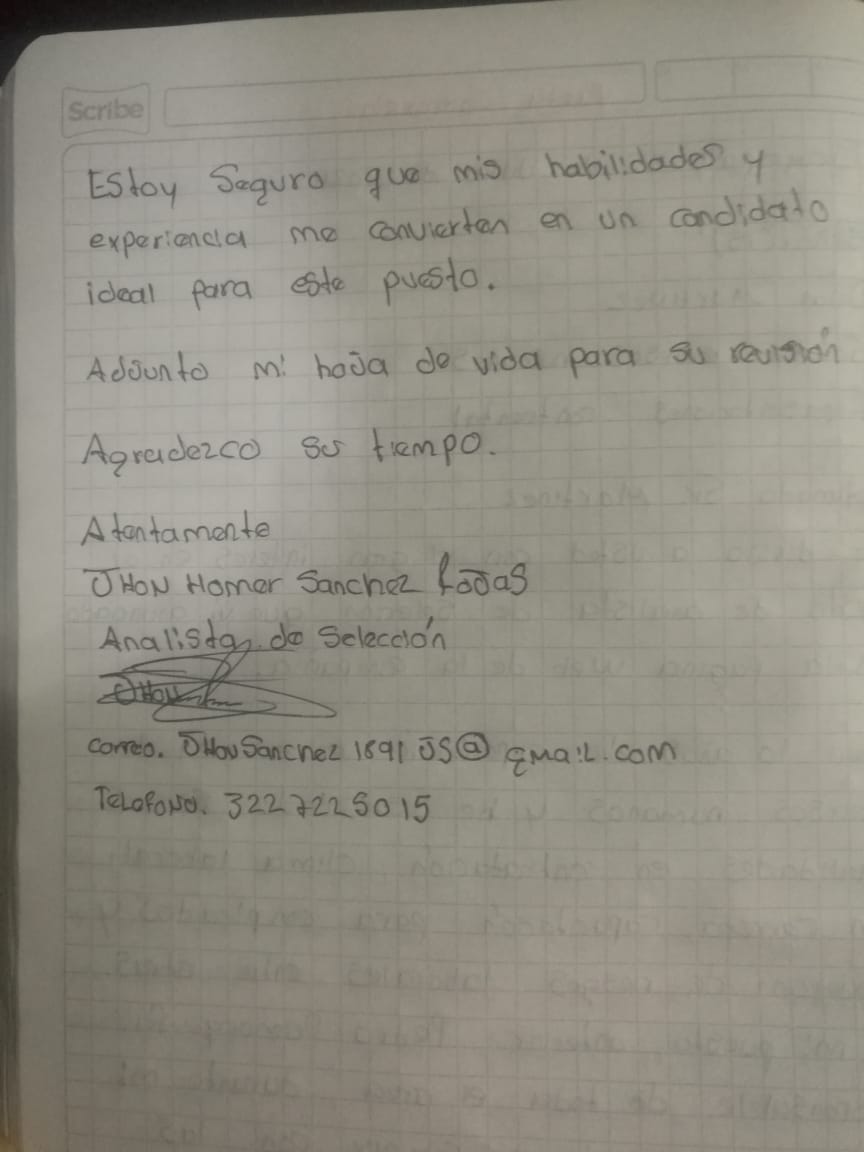 Scribe
Estoy Seguro que mis habilidades y
experiencia me convierten en un candidato
ideal para este puesto.
Adjunto mi hoja de vida para su revisión
Agradezco su tiempo.
Atentamente
JHON Homer Sanchez
Analista de Selección
JHon
correo. JHonSanchez1891JS@gmail.com
Telefono. 3227225015